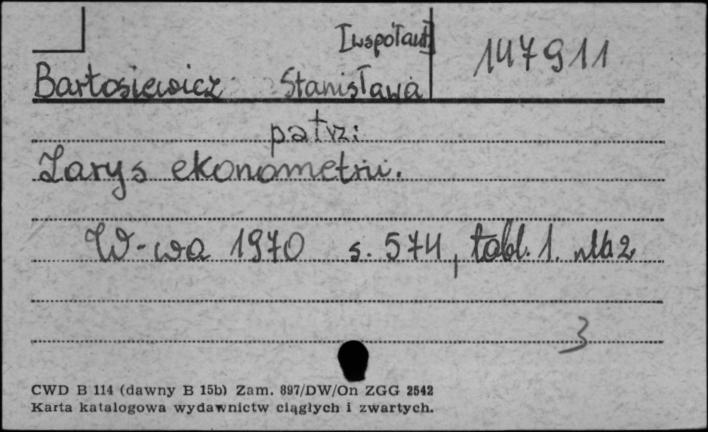 [współaut]
147911
Bartosiewicz Stanisława
patrz:
Zarys ekonometrii.
W-wa 1970 s. 574, tabl. 1. nlb 2
3
CWD B 114 (dawny B 15b) Zam. 897/DW/On ZGG 2542
Karta katalogowa wydawnictw ciągłych i zwartych.